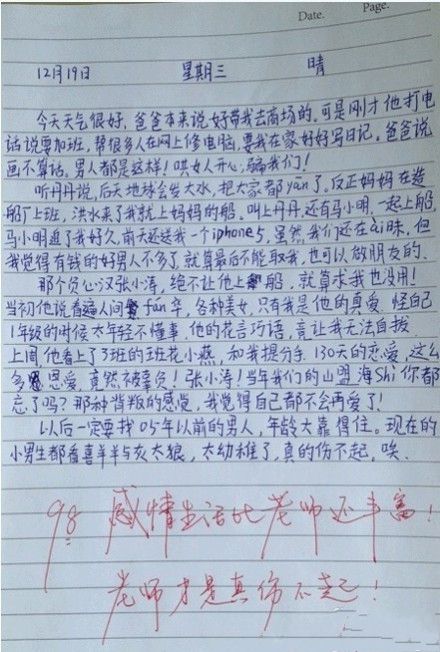 Date.
Page.
12月19日 星期三 晴
今天天气很好，爸爸本来说好带我去商场的。可是刚才他打电
话说要加班，帮很多人在网上修电脑，要我在家好好写日记。爸爸说
画不算话，男人都是这样！哄女人开心，骗我们！
听丹丹说，后天地球会发大水，把大家都yān了，反正妈妈在造
船厂上班，洪水来了我就上妈妈的船。叫上丹丹，还有马小明，一起上船，
马小明追了我好久，前天还送我一个iphone5，虽然我们还在ài昧，但
我觉得有钱的好男人不多了，就算最后不能取我，也可以做朋友的。
那个负心汉张小涛，绝不让他上船，就算求我也没用！
当初他说看遍人间fán华，各种美女，只有我是他的真爱。怪自己
1年级的时候太年轻不懂事，他的花言巧语，竟让我无法自拔
上周他看上了3班的班花小燕，和我提分手，130天的恋爱，这么
多恩爱，竟然被辜负！张小涛！当年我们的山盟海Shì你都
忘了吗？那种背叛的感觉，我觉得自己都不会再爱了！
以后一定要找05年以前的男人，年龄大靠得住。现在的
小男生都看喜羊羊与灰太狼，太幼稚了，真的伤不起，唉。
98 感情生活比老师还丰富！
老师才是真伤不起！